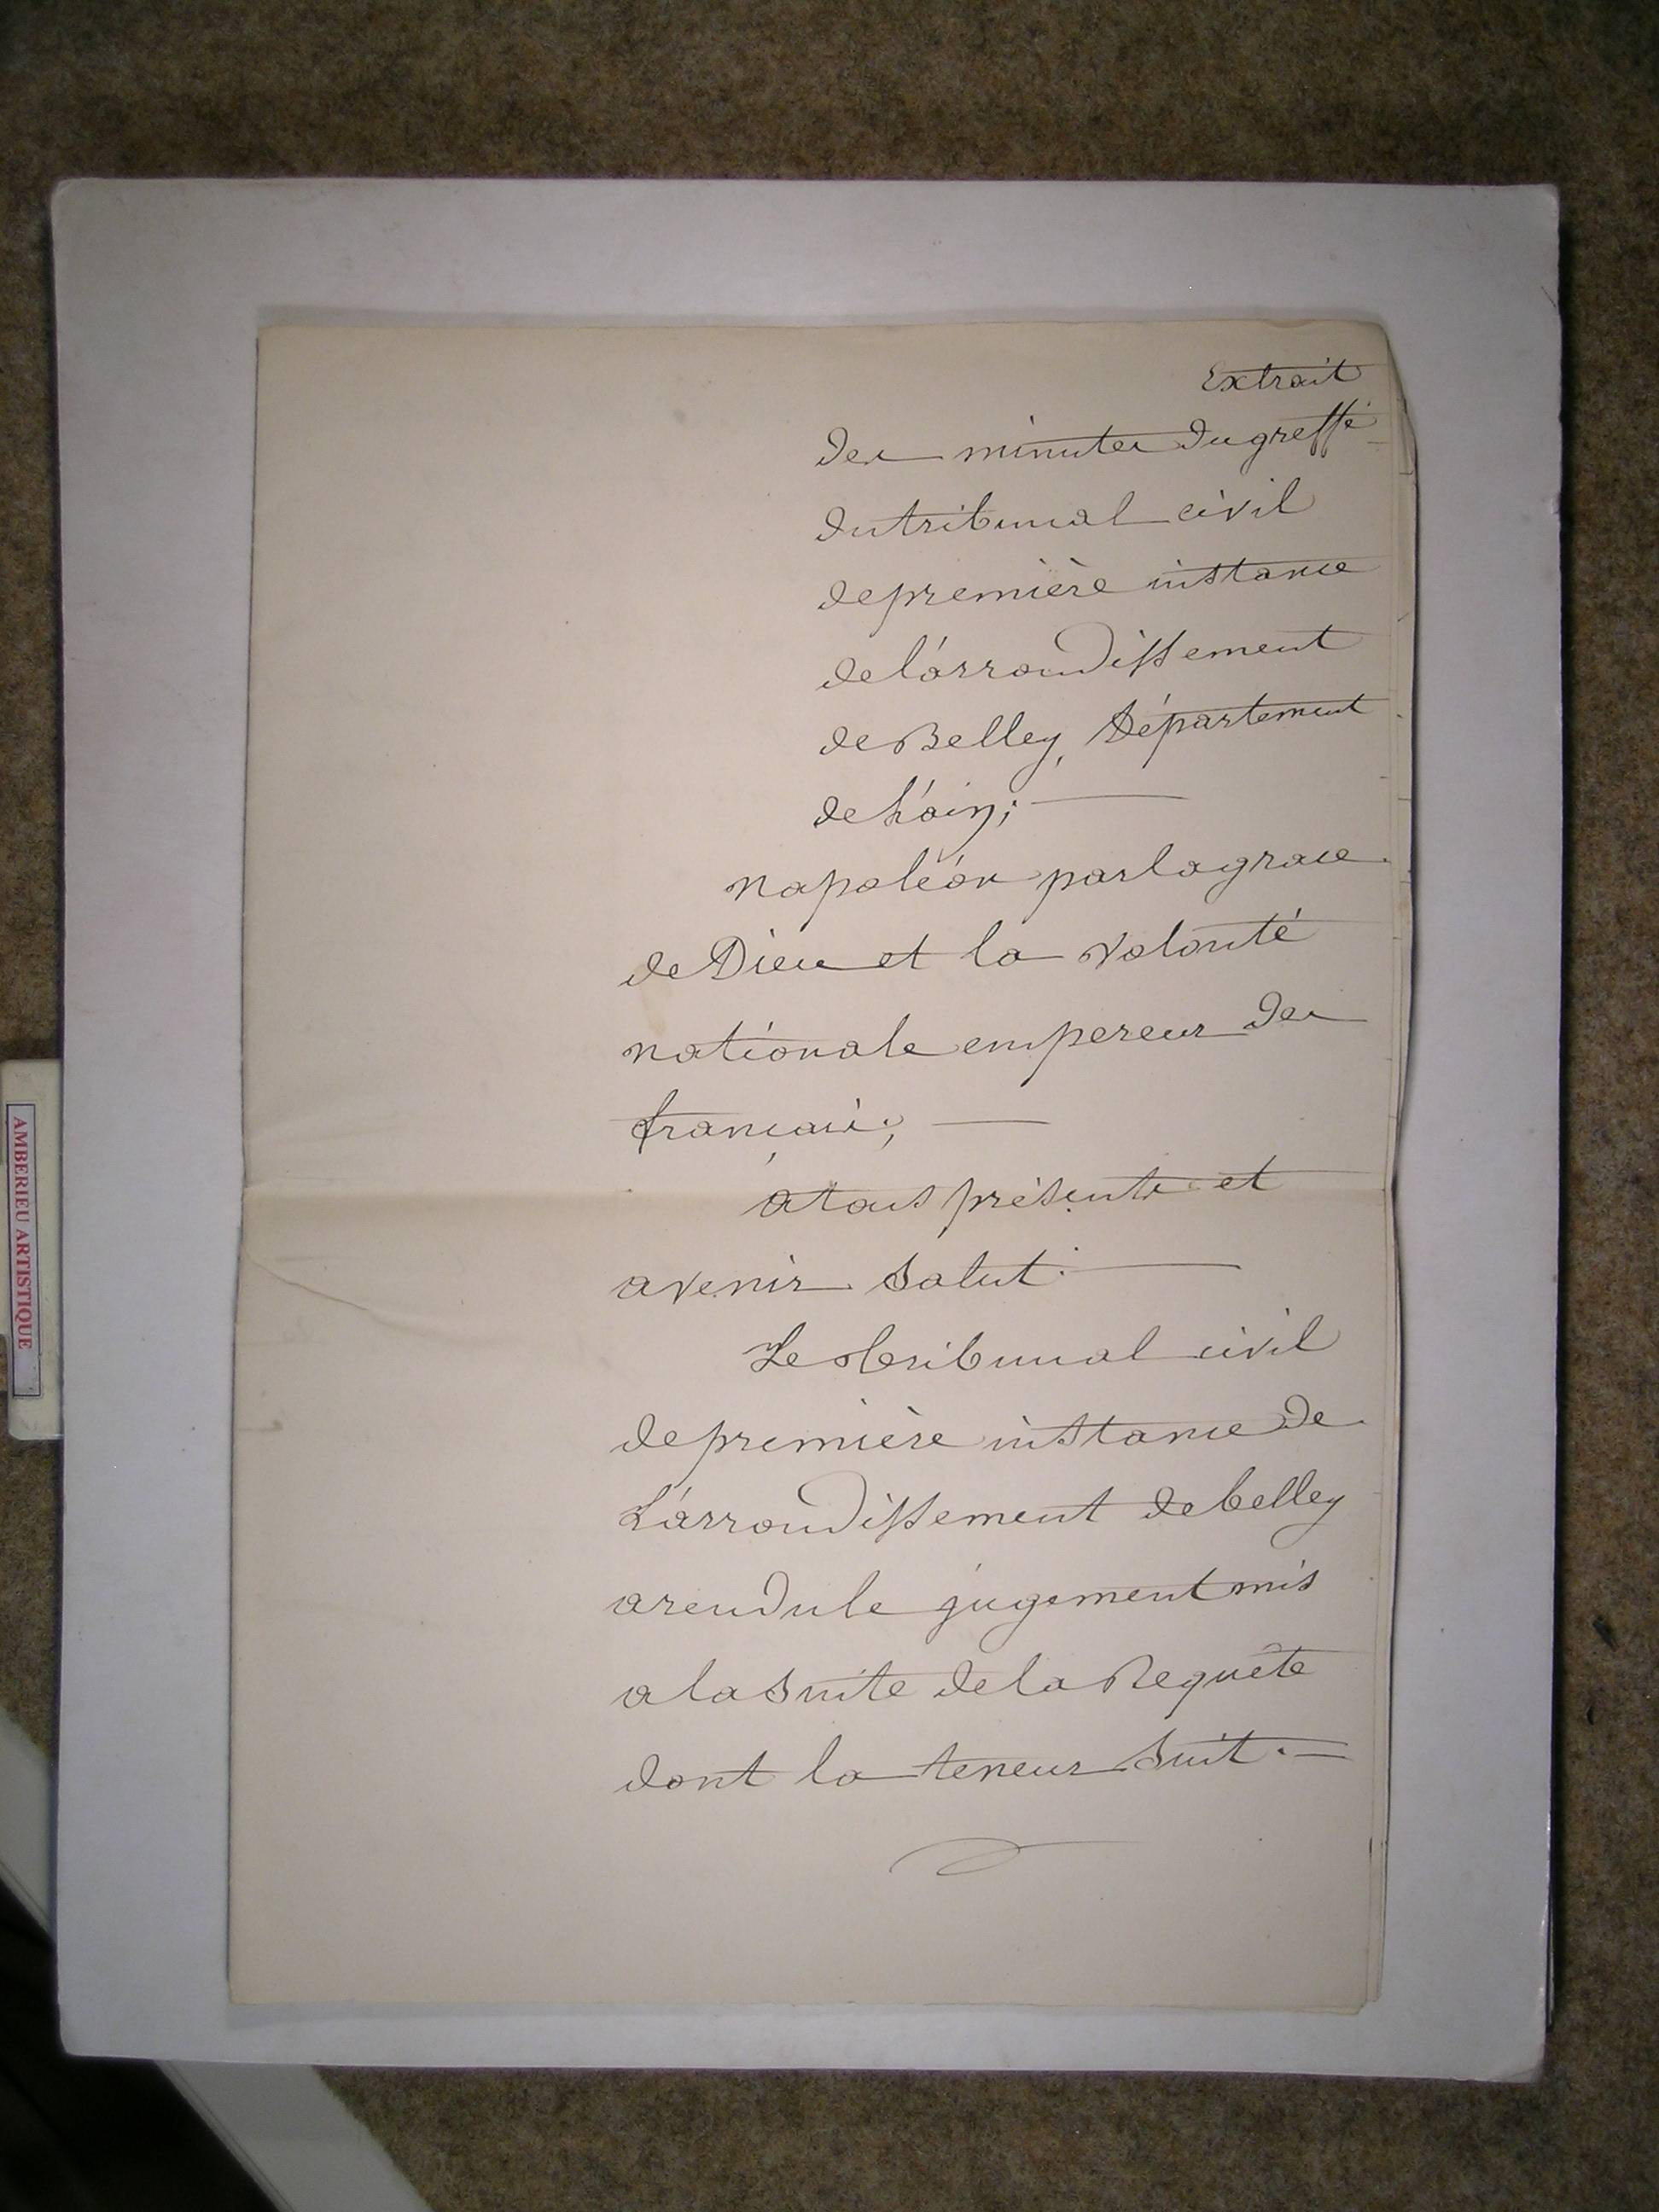 Extrait
des minutes du greffe
du tribunal civil
de première instance
de l'arrondissement
de Belley, Département
de L'ain;
napoléon par la grace
de Dieu et la volonté
nationale empereur des
français;
a tous présents et
avenir Salut.
Le tribunal civil
de première instance de
L'arrondissement de belley
a rendu le jugement mis
a la Suite de la Requête
dont la teneur Suit.
AMBERIEU ARTISTIQUE